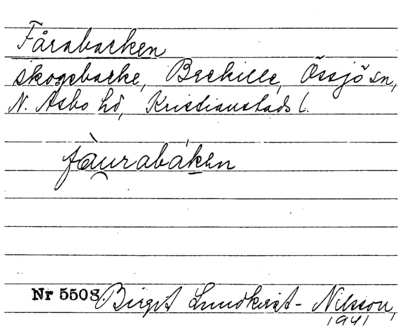 Fårabacken
skogsbacke, Backille, Össjö sn,
N. Åsbo hd, Kristianstads l.
fàurabáken
Nr 5508 Birgit Lundkvist-Nilsson,
1941